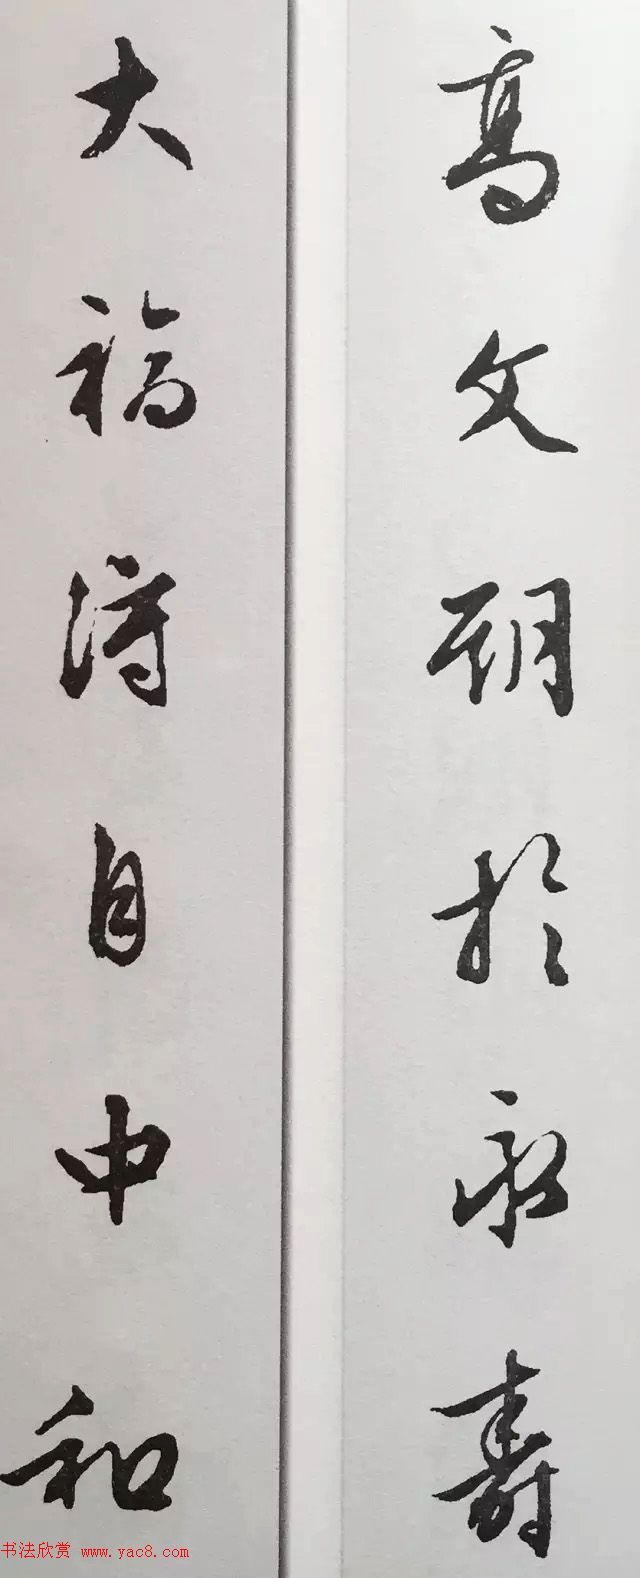 高文於永壽
大福得自中和
书法欣赏 www.yac8.com